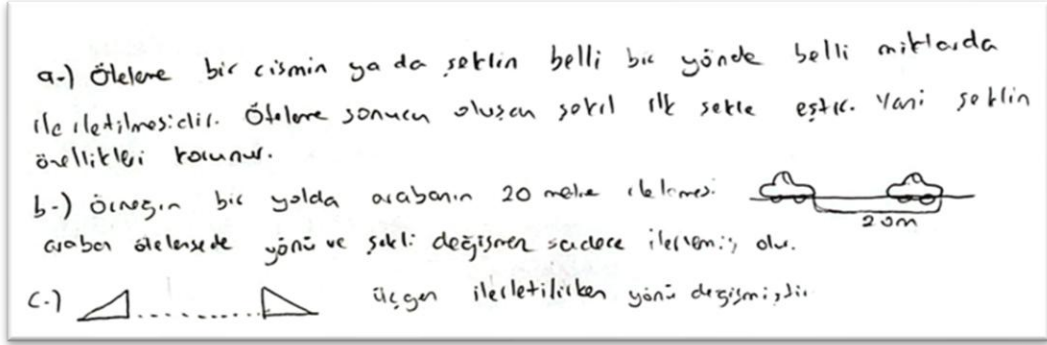 a-) Öteleme bir cismin ya da şeklin belli bir yönde belli miktarda
ilerletilmesidir. Öteleme sonucu oluşan şekil ilk şekle eştir. Yani şeklin
özellikleri korunur.
b-) örneğin bir yolda arabanın 20 metre ilerlemesi 20m
araba ötelensede yönü ve şekli değişmez sadece ilerlemiş olur.
c-) üçgen ilerletilirken yönü değişmiştir